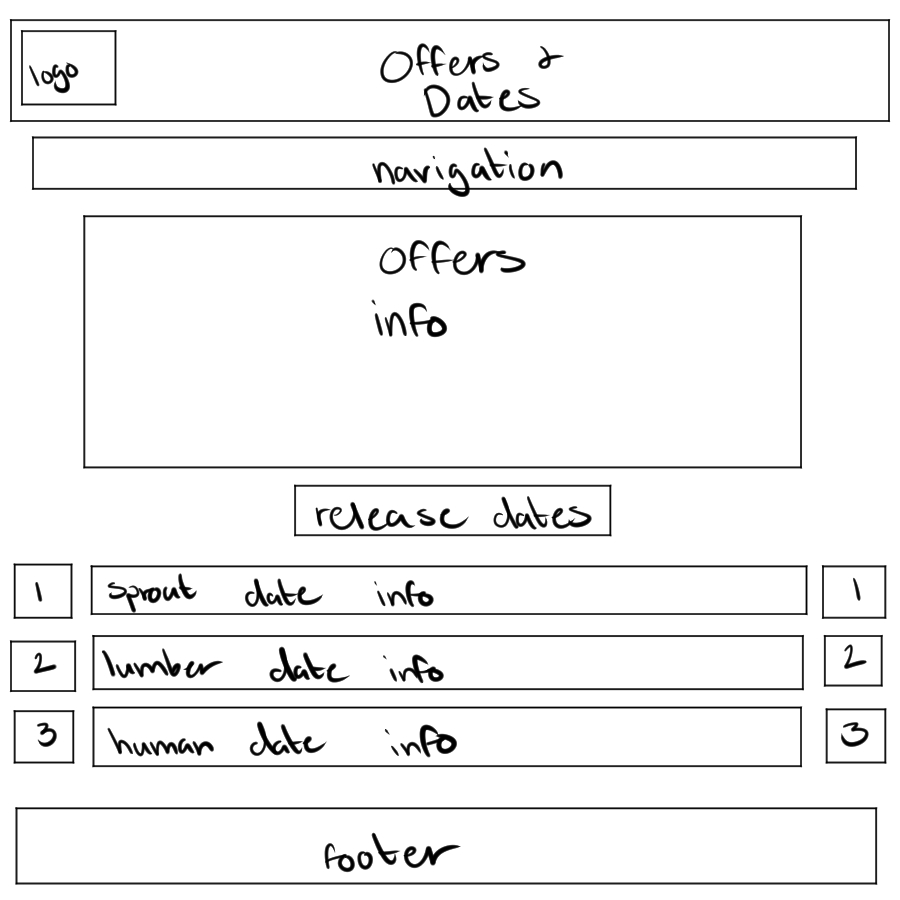 logo
Offers &
Dates
navigation
Offers
info
release dates
1 sprout date info 1
2 lumber date info 2
3 human date info 3
footer